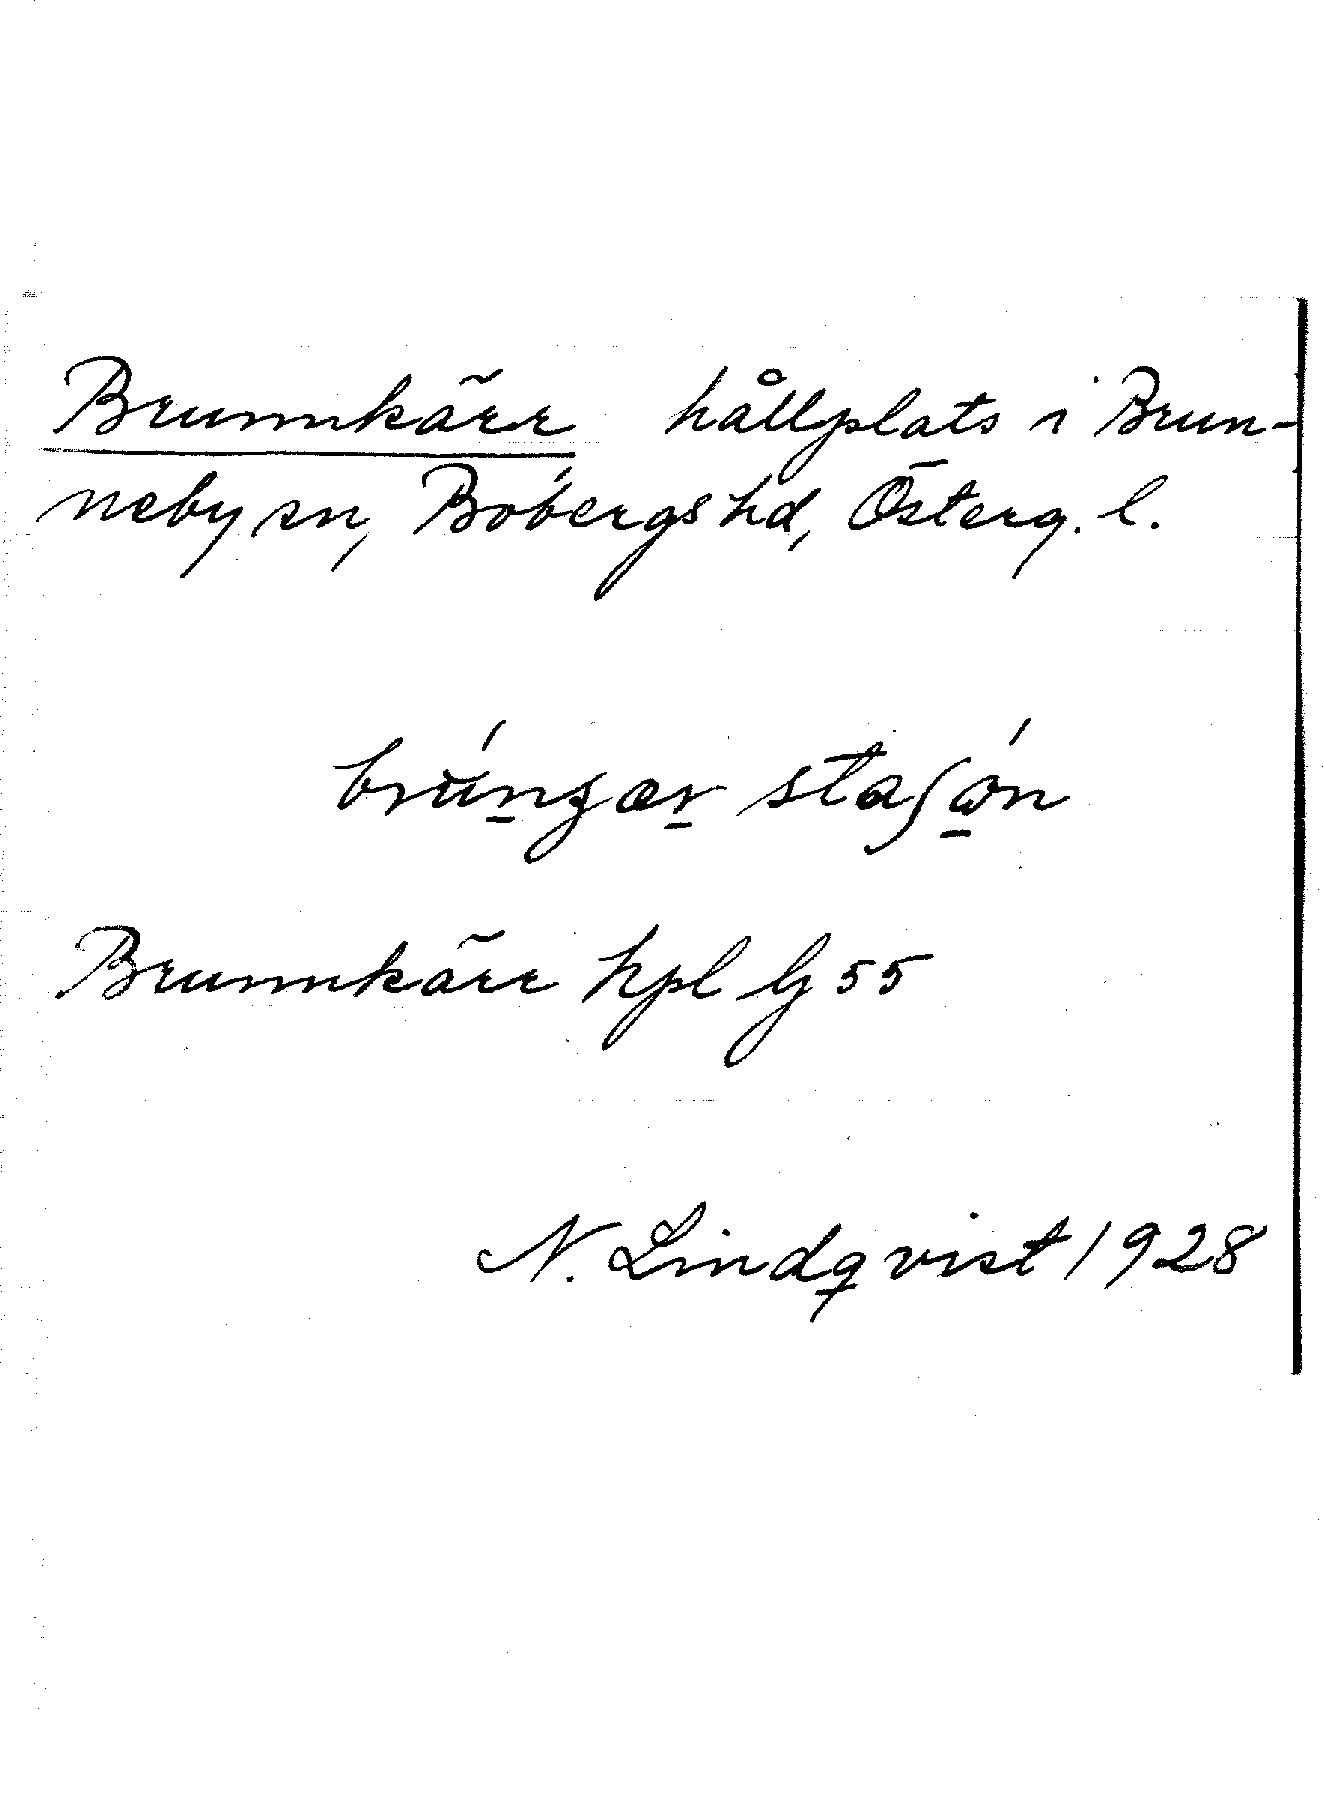 Brunnkärr hållplats i Brun-
neby sn, Bobergs hd, Österg. l.
staʃón
Brunnkärr hpl lj 55
N. Lindqvist 1928